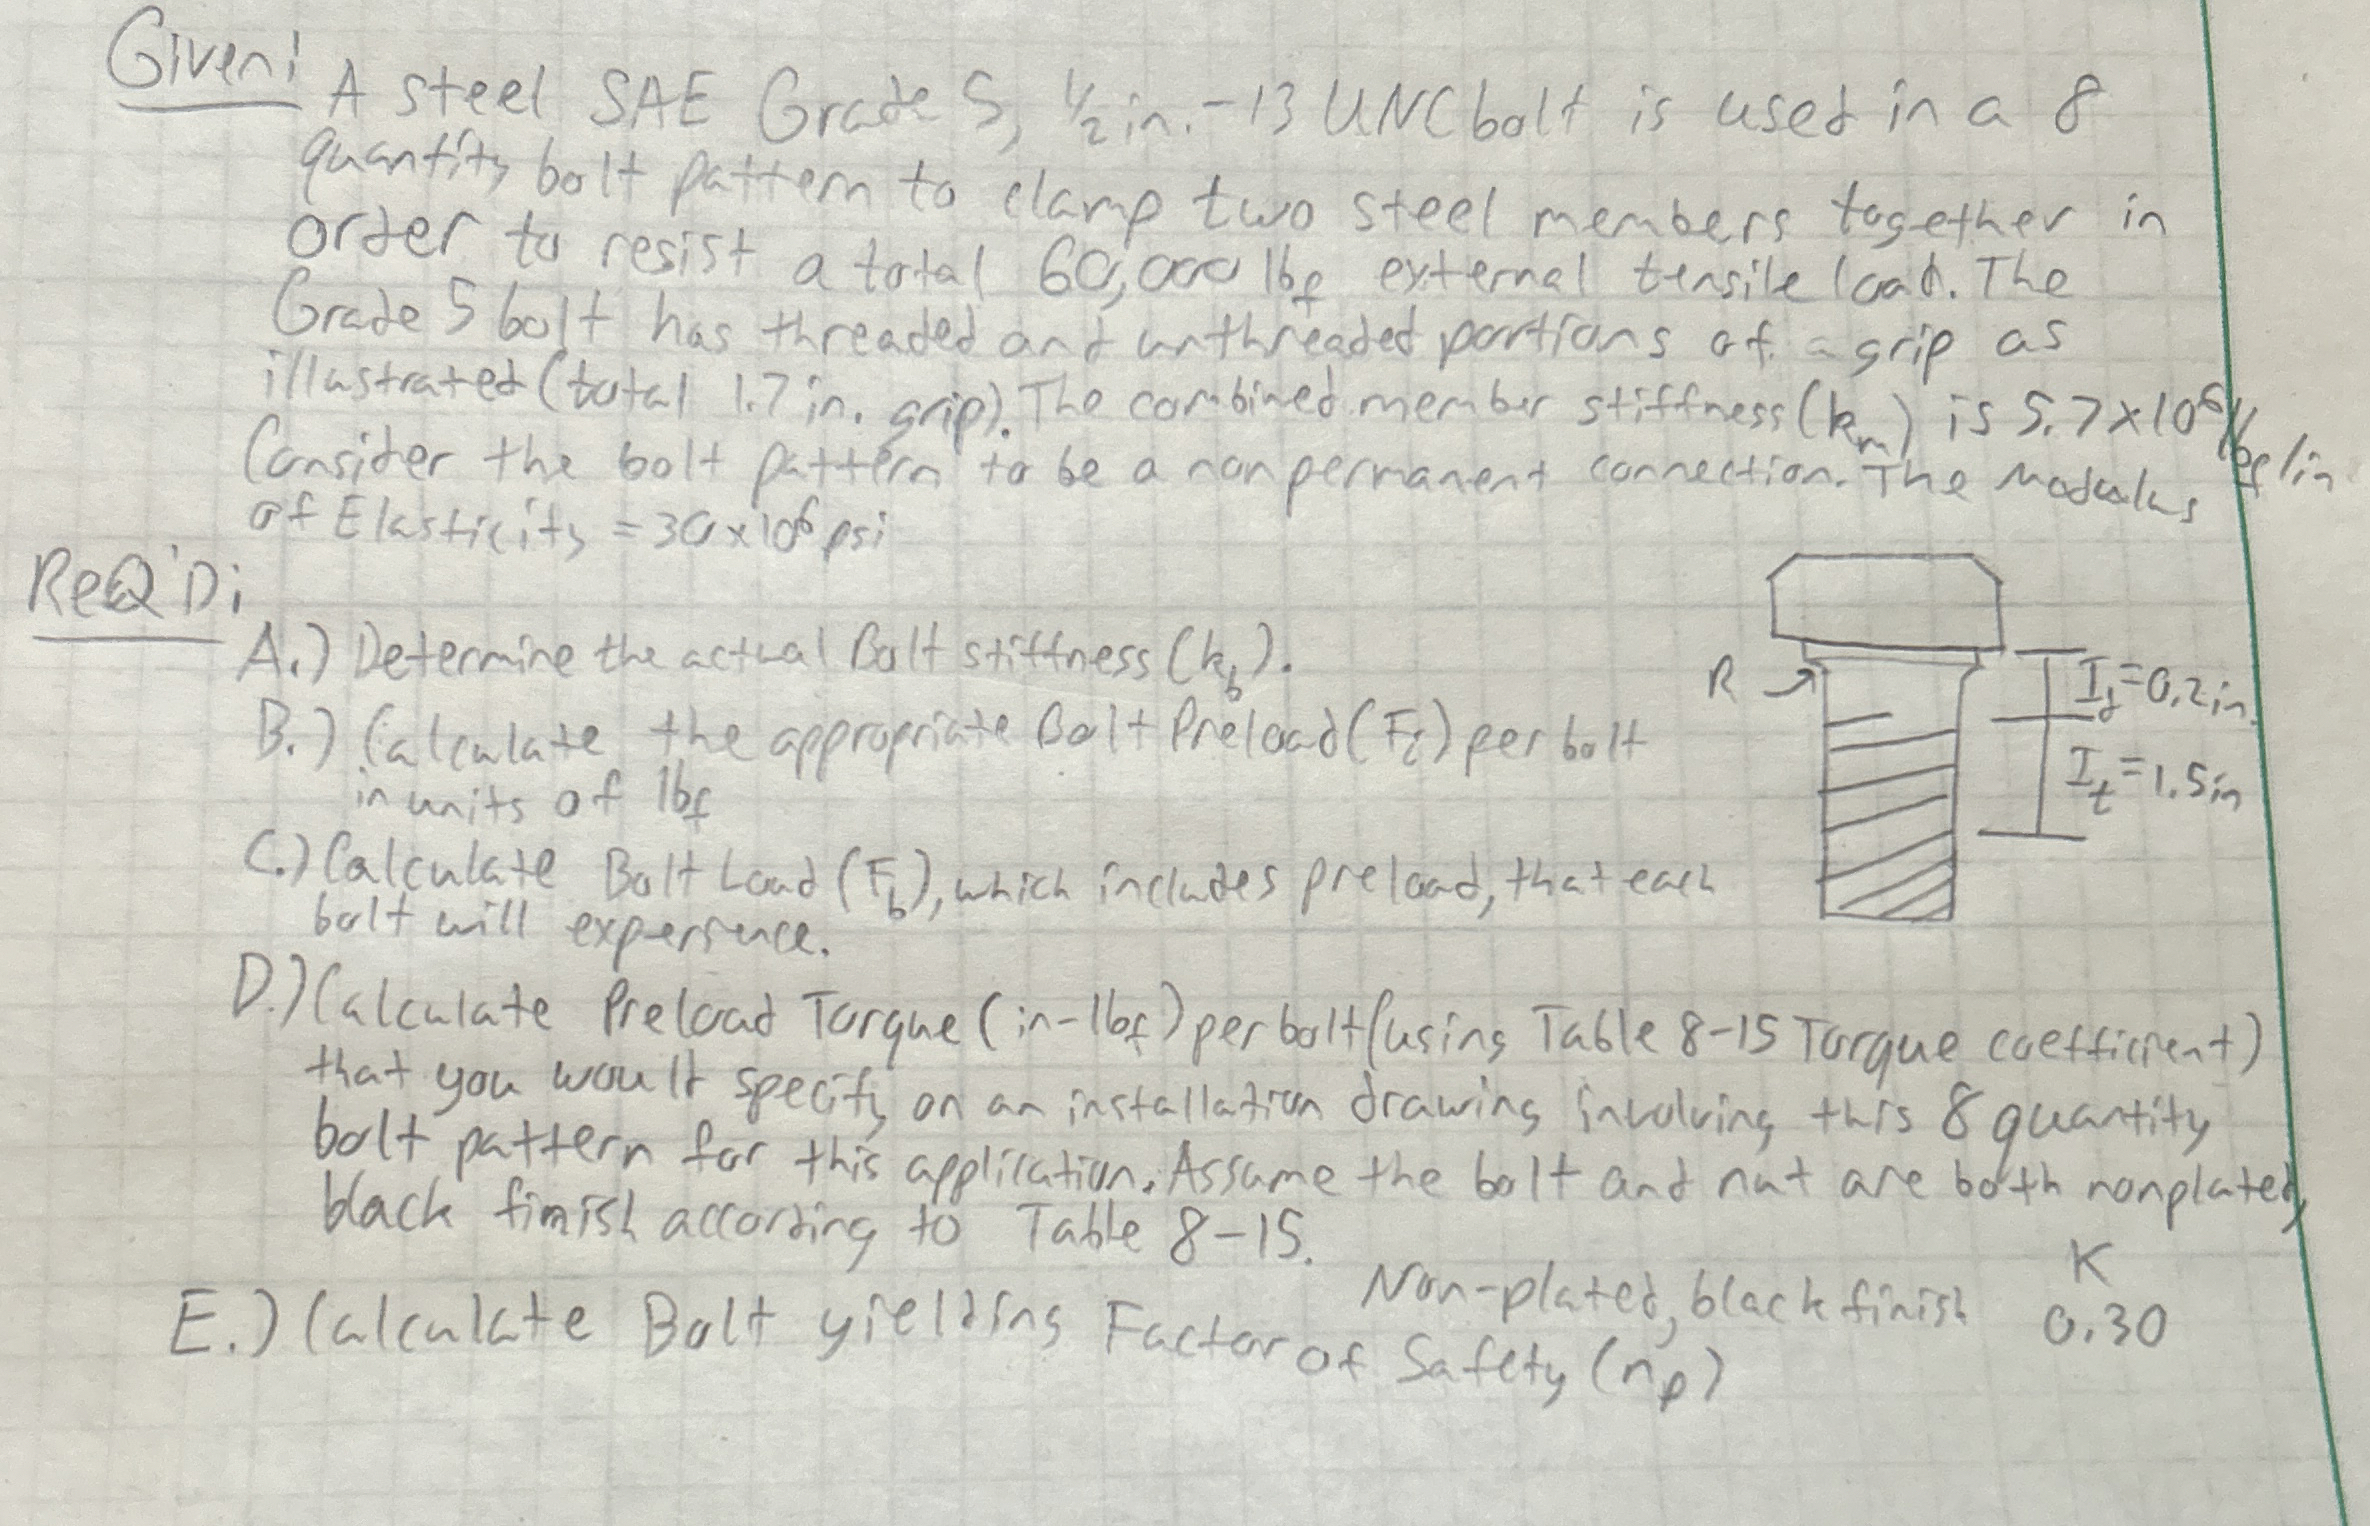 Given: A steel SAE Grade 5, 1/2 in. - 13 UNC bolt is used in a 8
quantity bolt pattern to clamp two steel members together in
order to resist a total 60,000 lbf external tensile load. The
Grade 5 bolt has threaded and unthreaded portions of a grip as
illustrated (total 1.7 in. grip). The combined member stiffness (km) is 5.7x10^6 lbf/in
Consider the bolt pattern to be a nonpermanent connection. The Modulus
of Elasticity = 30x10^6 psi
ReQ'D:
A.) Determine the actual Bolt stiffness (kb).
B.) Calculate the appropriate Bolt Preload (Fi) per bolt
in units of lbf
C.) Calculate Bolt Load (Fb), which includes preload, that each
bolt will experience.
R
Id = 0.2 in.
It = 1.5 in
D.) Calculate Preload Torque (in-lbf) per bolt (using Table 8-15 Torque coefficient)
that you would specify on an installation drawing involving this 8 quantity
bolt pattern for this application. Assume the bolt and nut are both nonplated,
black finish according to Table 8-15.
K
Non-plated, black finish 0.30
E.) Calculate Bolt yielding Factor of Safety (np)